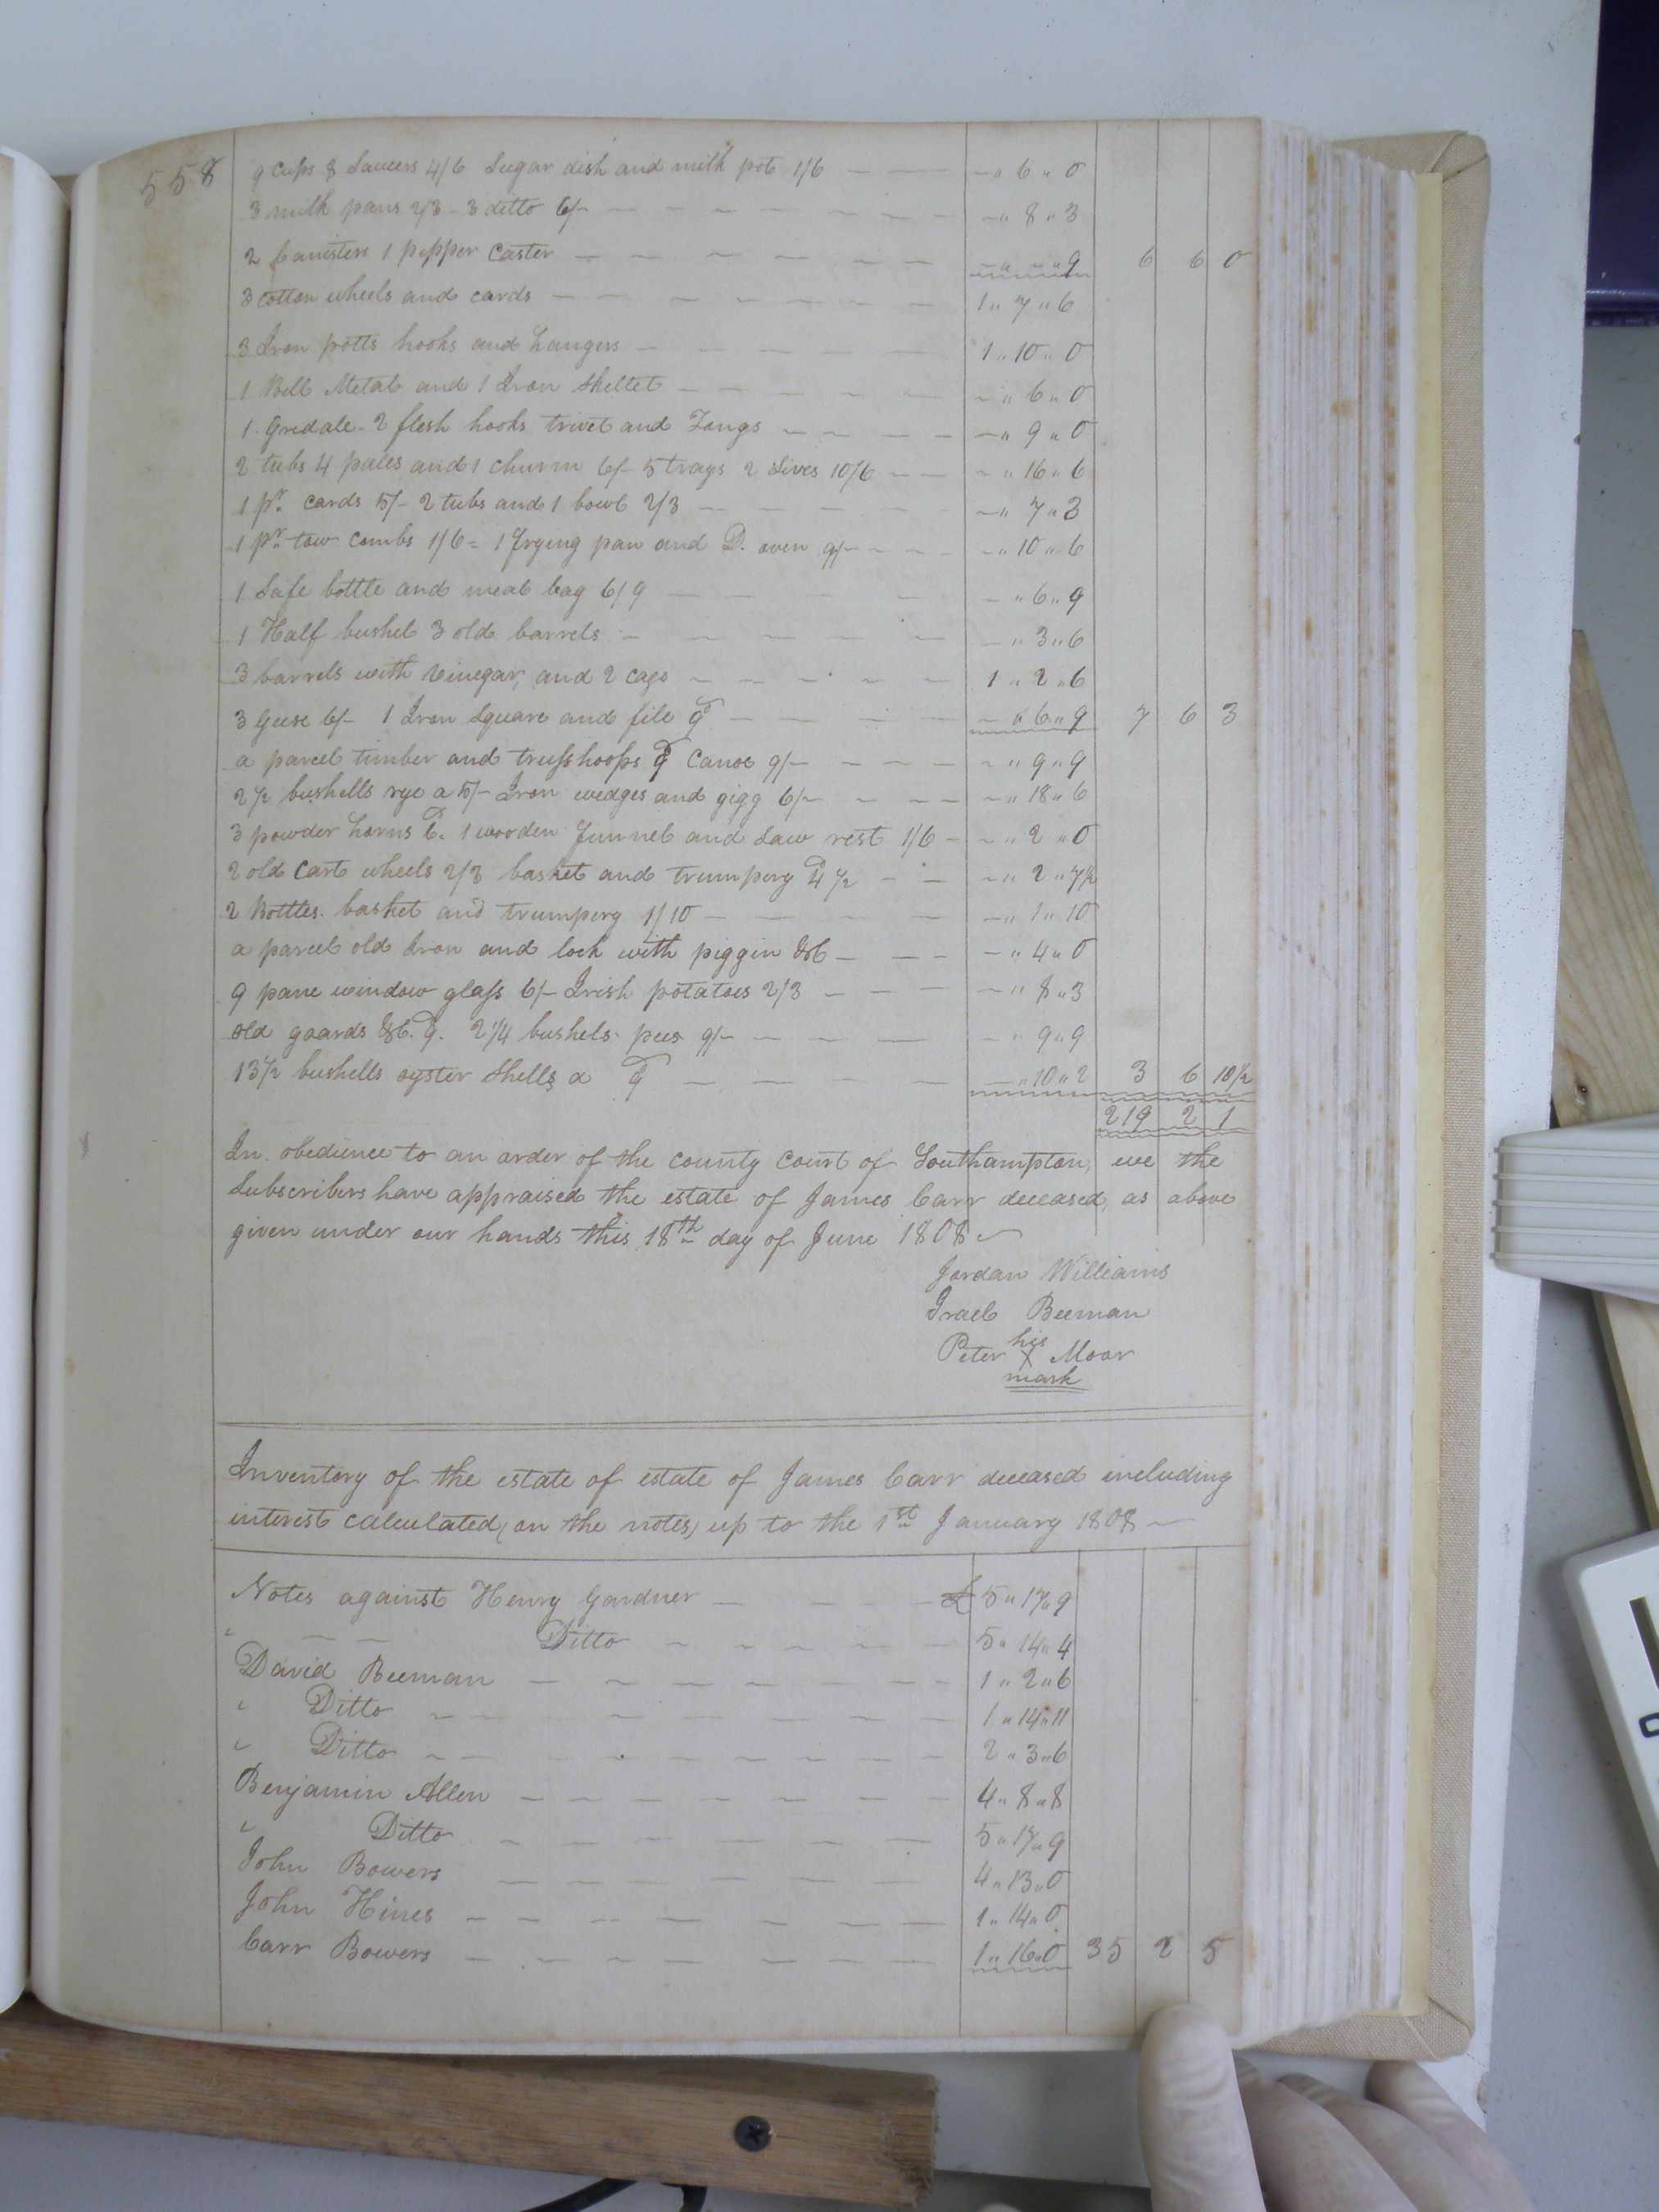 558
9 Cups 8 Saucers 4/6 Sugar dish and milk pot 1/6 — — — " 6 " 0
3 milk pans 2/3 - 3 ditto 6/- — — — " 8 " 3
2 Canisters 1 pepper Caster — — — " — " 9 6 6 0
3 cotton wheels and cards — — — 1 " 7 " 6
3 Iron potts hooks and hangers — — — 1 " 10 " 0
1 Bell Metal and 1 Iron Skellet — — — " 6 " 0
1 Gredale - 2 flesh hooks trivet and Tongs — — — " 9 " 0
2 tubs 4 pales and 1 churm 6/- 5 trays 2 Sives 10/6 — — — " 16 " 6
1 pr. cards 5/- 2 tubs and 1 bowl 2/3 — — — " 7 " 3
1 pr. tow combs 1/6 = 1 frying pan and D. oven 9/- — — — " 10 " 6
1 Safe bottle and meal bag 6/9 — — — " 6 " 9
1 Half bushel 3 old barrels — — — " 3 " 6
3 barrels with vinegar, and 2 cags — — — 1 " 2 " 6
3 Geese 6/- 1 Iron Square and file 9d — — — " 6 " 9 7 6 3
a parcel timber and trusshoops 9d Canoe 9/- — — — " 9 " 9
2 1/2 bushells rye a 5/- Iron wedges and gigg 6/- — — — " 18 " 6
3 powder horns 6d. 1 wooden funnel and Saw rest 1/6 — — " 2 " 0
2 old Cart wheels 2/3 basket and trumpery 4d 1/2 — — — " 2 " 7 1/2
2 Bottles. basket and trumpery 1/10 — — — " 1 " 10
a parcel old Iron and lock with piggin &c — — — " 4 " 0
9 pane window glass 6/- Irish potatoes 2/3 — — — " 8 " 3
old goards &c. 9d. 2 1/4 bushels pees 9/- — — — " 9 " 9
13 1/2 bushells oyster Shells a 9d — — — " 10 " 2 3 6 10 1/2
219 2 1
In obedience to an order of the county Court of Southampton, we the
Subscribers have appraised the estate of James Carr deceased, as above
given under our hands this 18th day of June 1808
Jordan Williams
Irael Beeman
his
Peter X Moor
mark
Inventory of the estate of estate of James Carr deceased including
interest calculated, (on the notes) up to the 1st January 1808 —
Notes against Henry Gardner — — — £ 5 " 17 " 9
" — — Ditto — — — 5 " 14 " 4
David Beeman — — — 1 " 2 " 6
" Ditto — — — 1 " 14 " 11
" Ditto — — — 2 " 3 " 6
Benjamin Allen — — — 4 " 8 " 8
" Ditto — — — 5 " 17 " 9
John Bowers — — — 4 " 13 " 0
John Hines — — — 1 " 14 " 0
Carr Bowers — — — 1 " 16 " 0 35 2 5